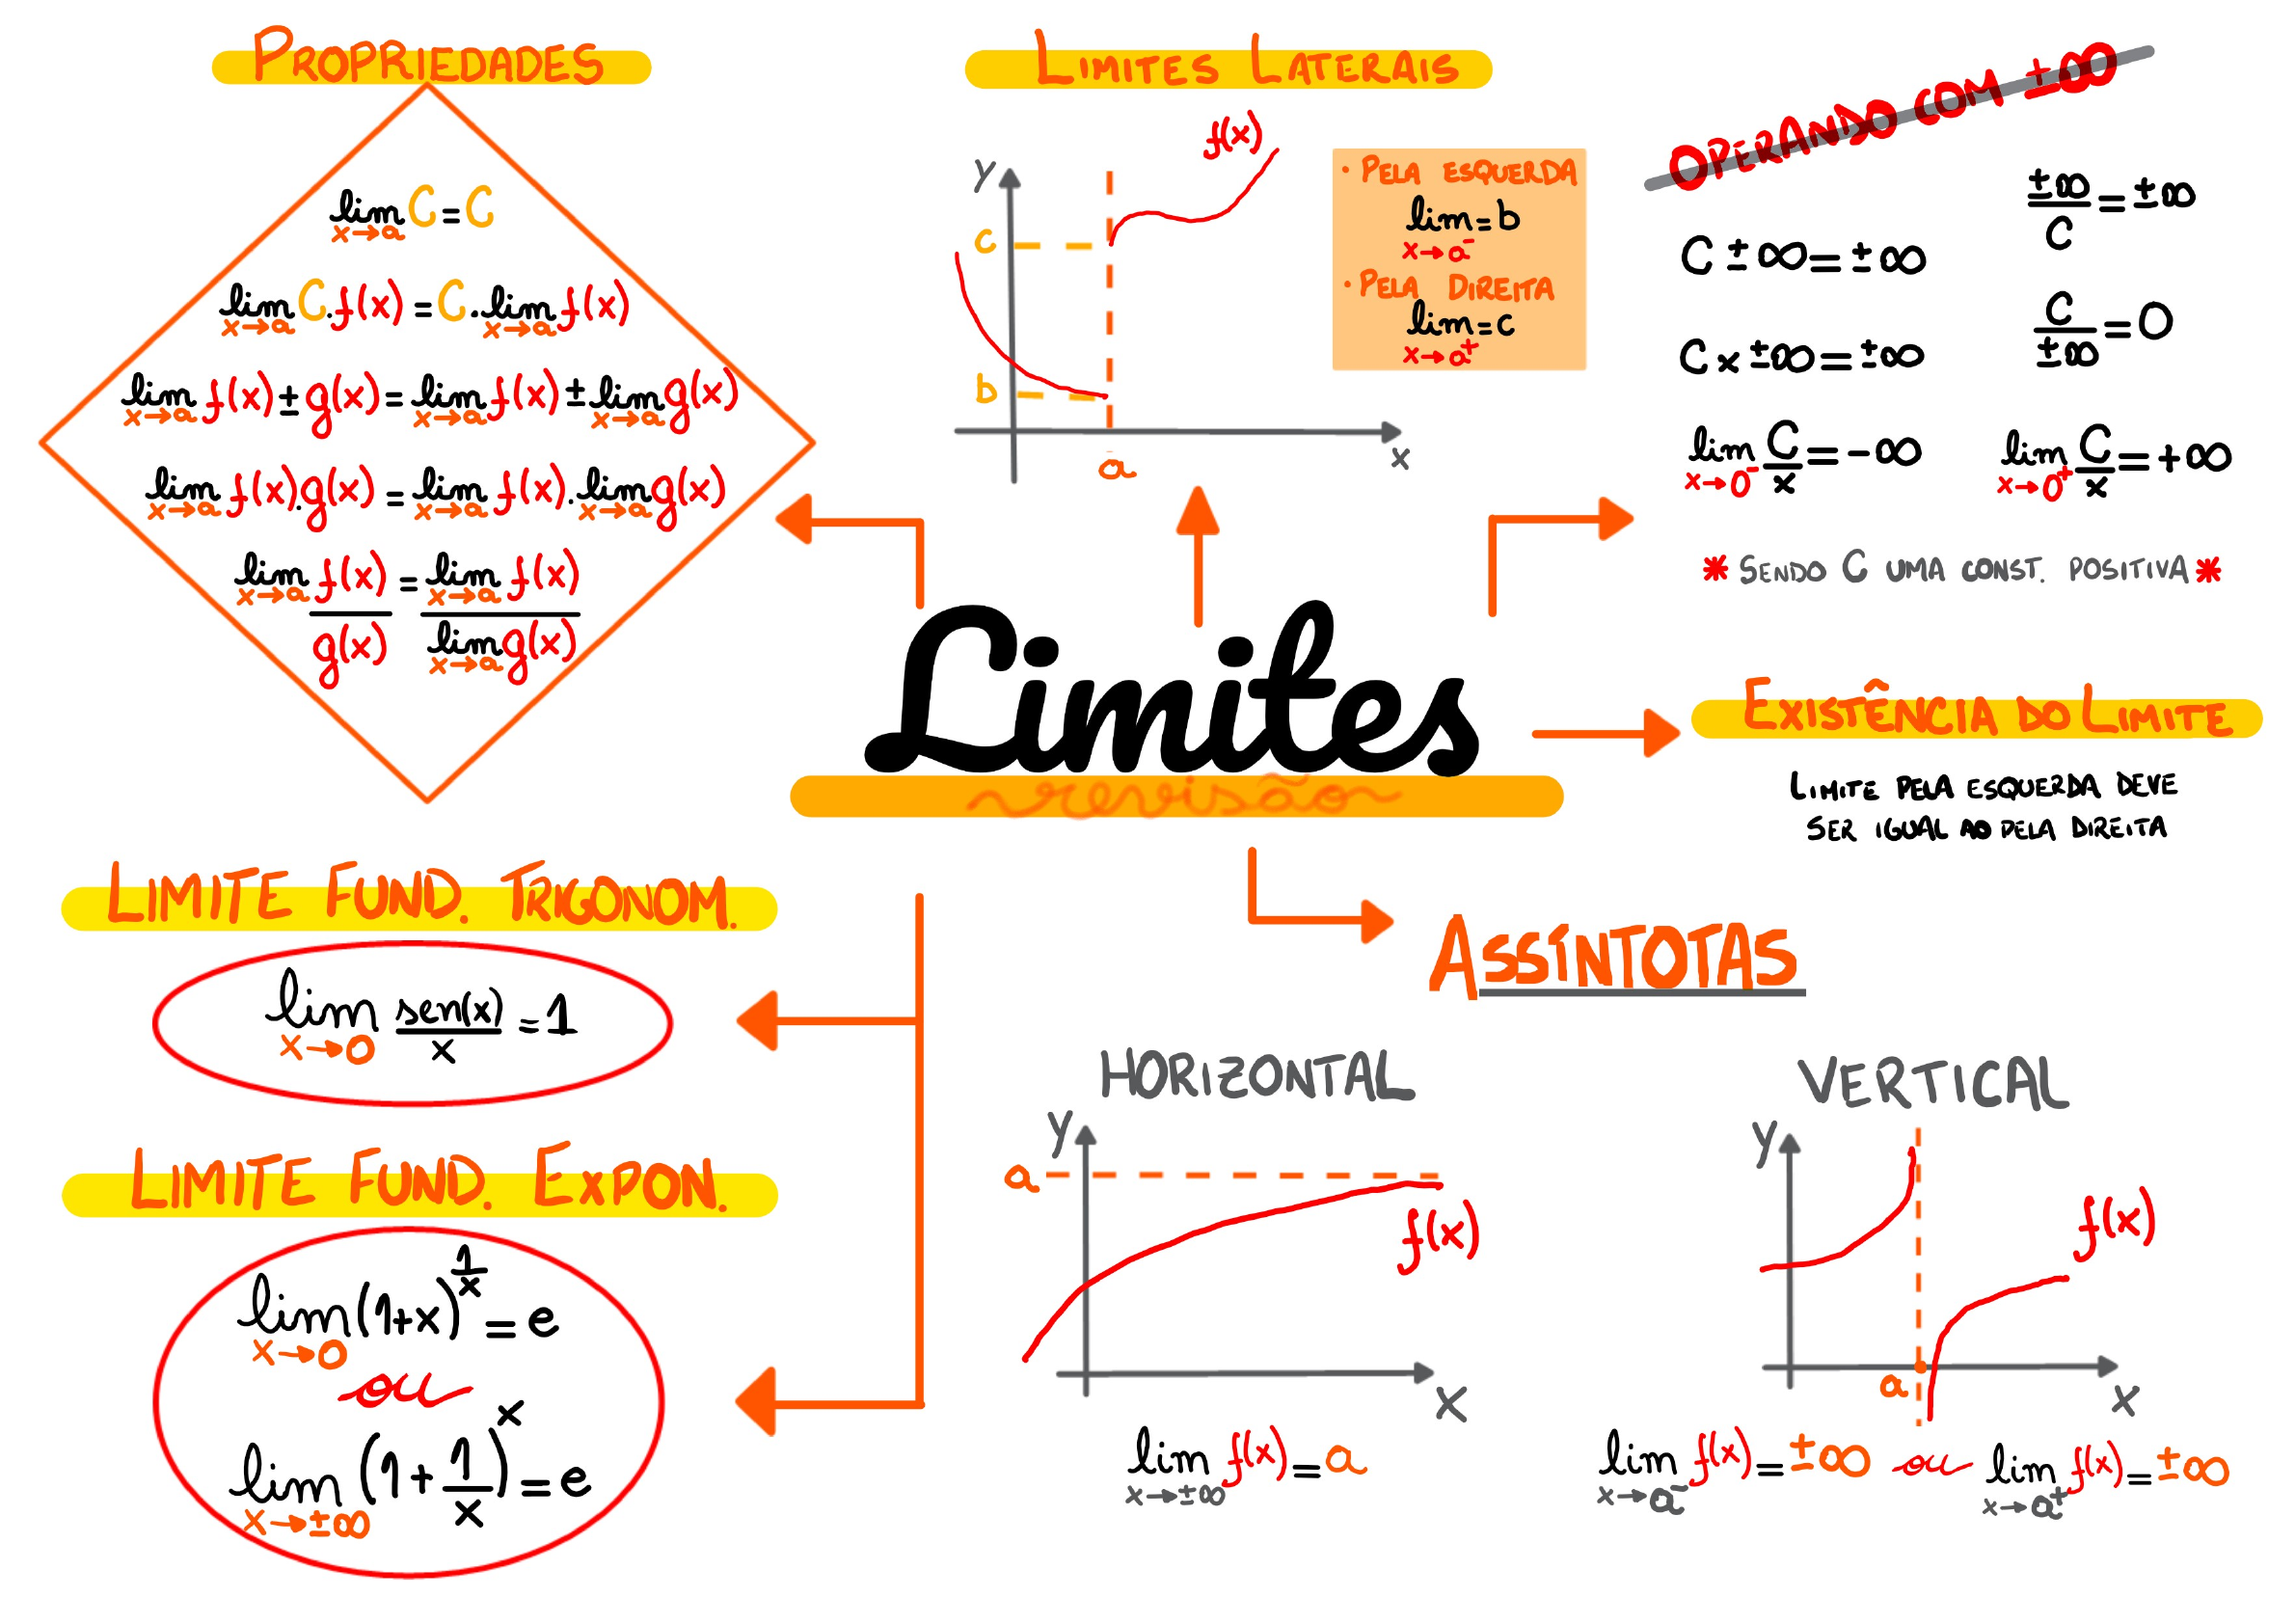 PROPRIEDADES
lim C = C
x→a
lim C.f(x) = C.lim f(x)
x→a x→a
lim f(x) ± g(x) = lim f(x) ± lim g(x)
x→a x→a x→a
lim f(x).g(x) = lim f(x).lim g(x)
x→a x→a x→a
lim f(x) = lim f(x)
x→a x→a
g(x) lim g(x)
x→a
LIMITES LATERAIS
f(x)
y
c
b
a
x
• PELA ESQUERDA
lim = b
x→a⁻
• PELA DIREITA
lim = c
x→a⁺
OPERANDO COM ±∞
±∞/C = ±∞
C ± ∞ = ±∞
C/±∞ = 0
C x ±∞ = ±∞
lim C/x = -∞
x→0⁻
lim C/x = +∞
x→0⁺
* SENDO C UMA CONST. POSITIVA *
Limites
revisão
EXISTÊNCIA DO LIMITE
LIMITE PELA ESQUERDA DEVE
SER IGUAL AO PELA DIREITA
LIMITE FUND. TRIGONOM.
lim sen(x)/x = 1
x→0
LIMITE FUND. EXPON.
lim (1+x)^(1/x) = e
x→0
ou
lim (1 + 1/x)^x = e
x→±∞
ASSÍNTOTAS
HORIZONTAL
y
a
f(x)
x
lim f(x) = a
x→±∞
VERTICAL
y
f(x)
a
x
lim f(x) = ±∞ ou lim f(x) = ±∞
x→a⁻ x→a⁺